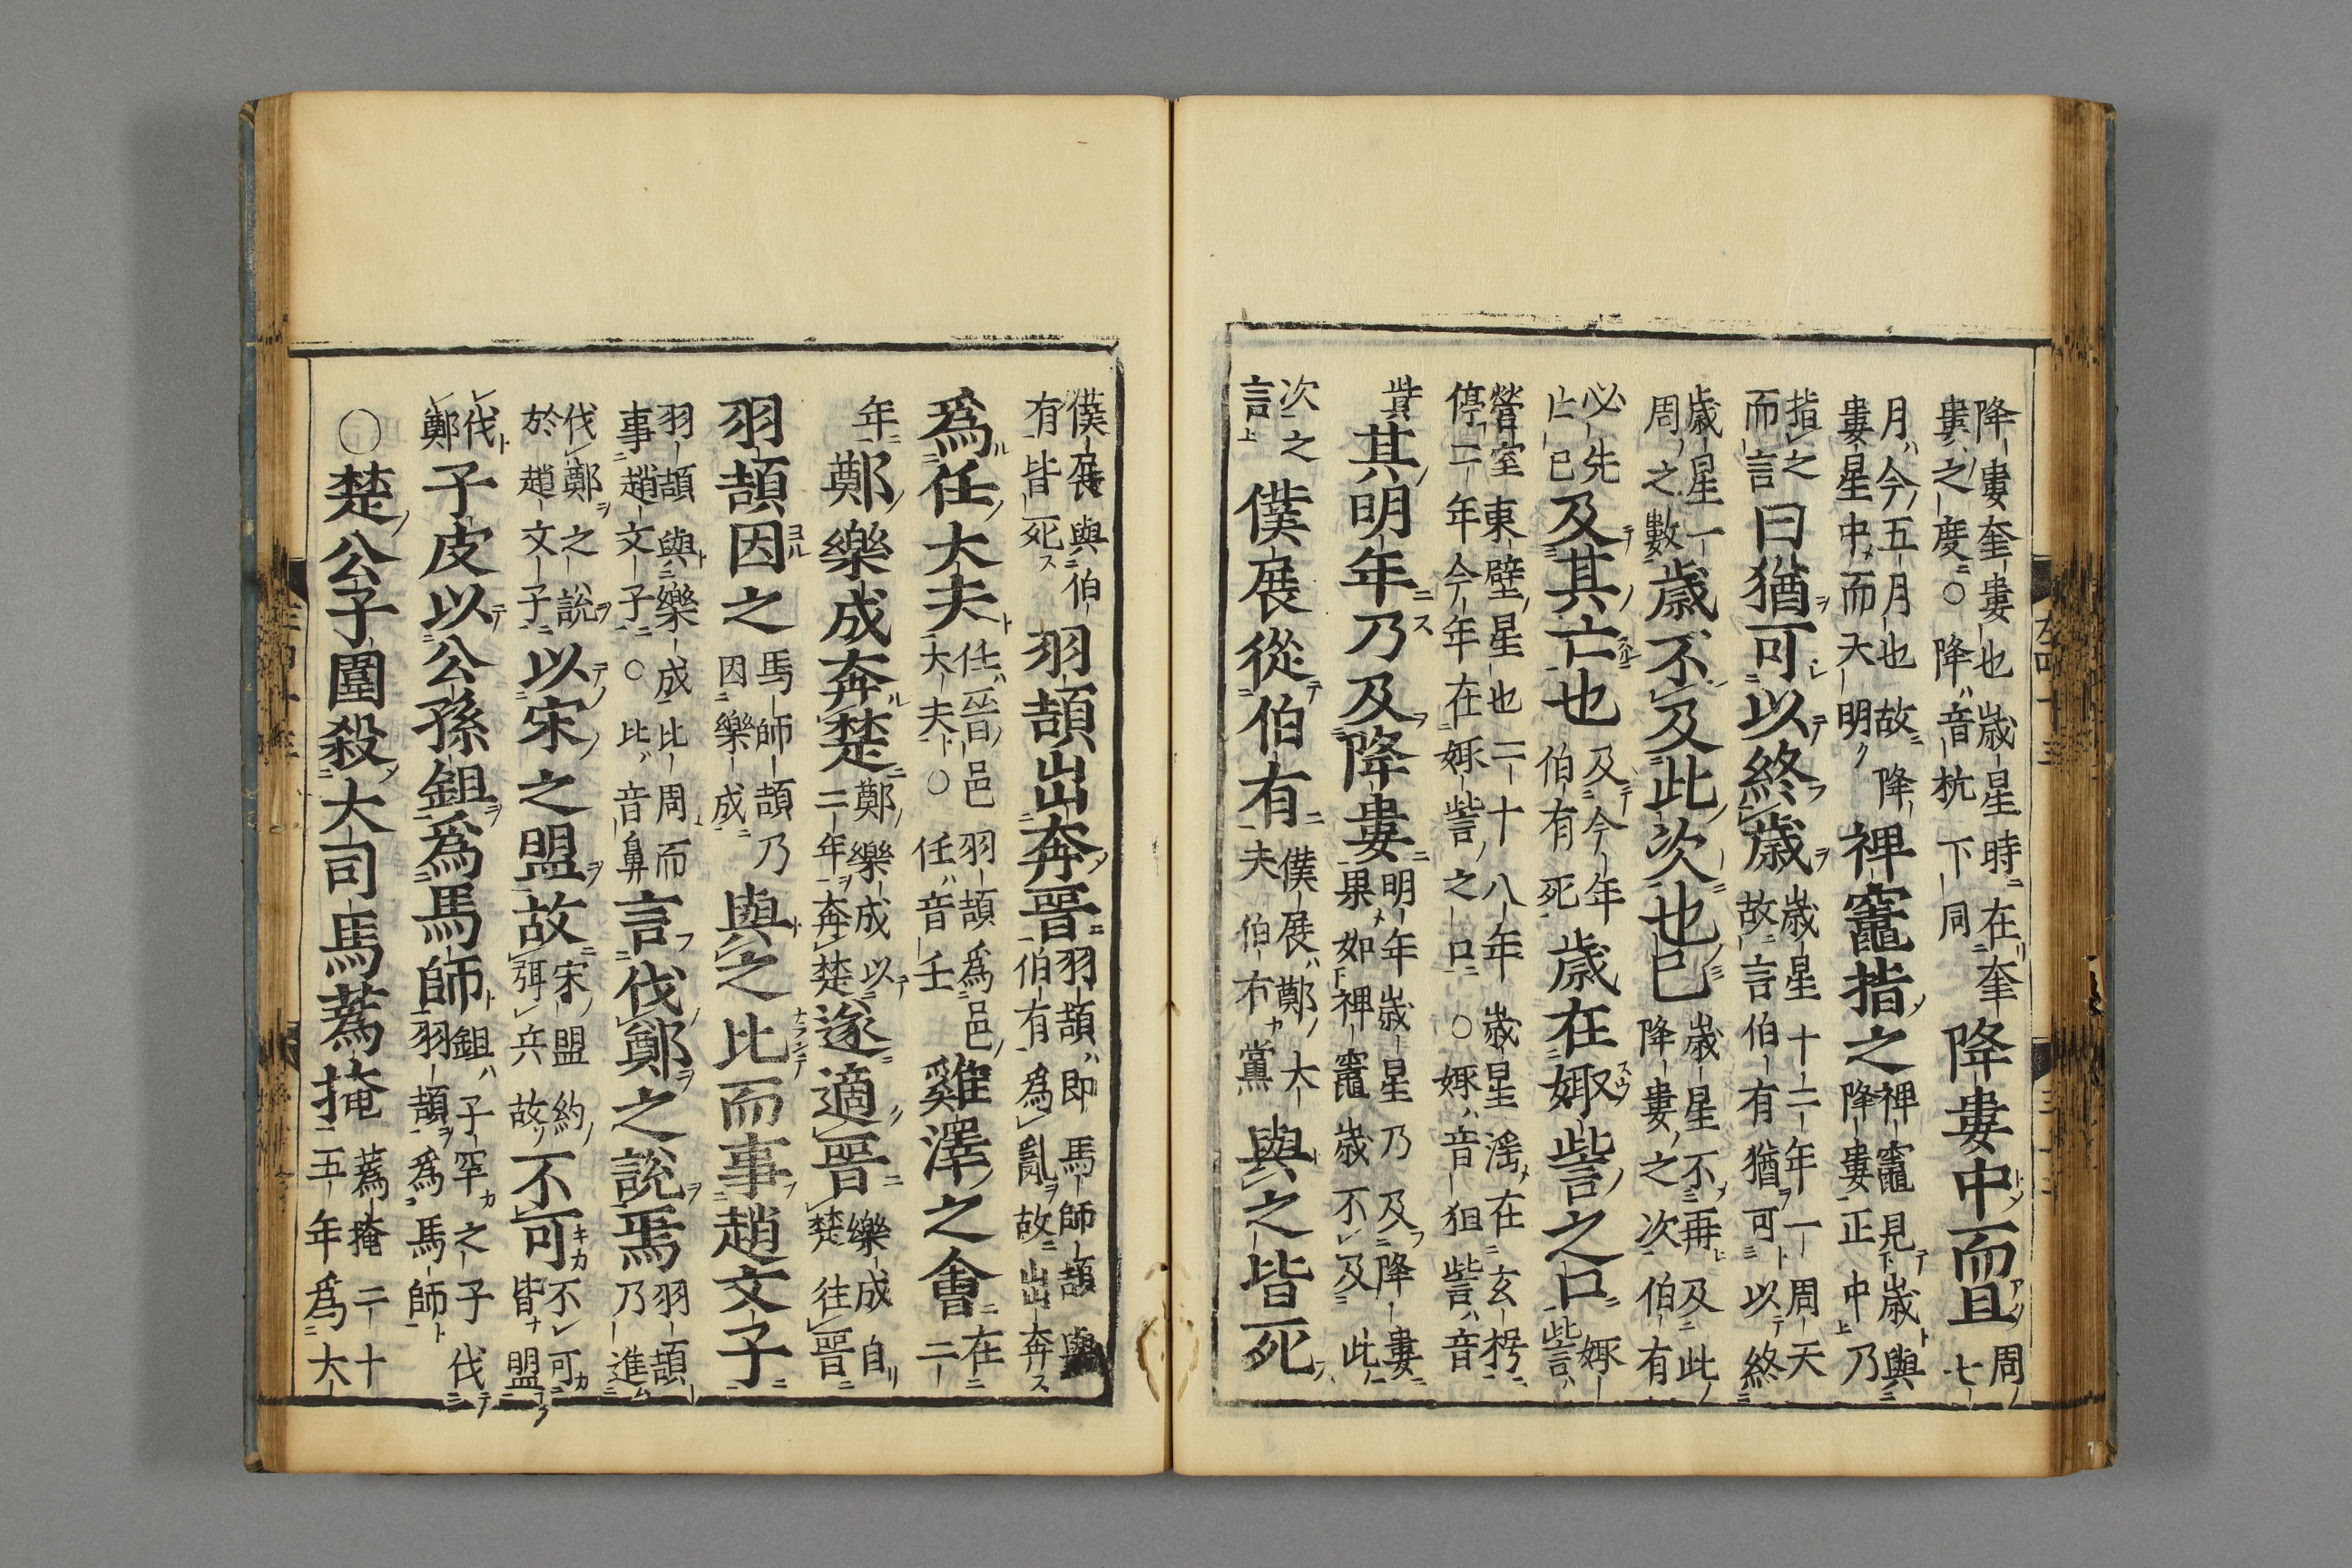 降婁奎婁也歳星時在奎
婁之度○降音杭下同
降婁中而且
周七
月今五月也故降
婁星中而天明
裨竈指之
裨竈見歳與
降婁正中乃
指之
而言
曰猶可以終歳
歳星十二年一周天
故言伯有猶可以終
歳星一
周之數
歳不及此次也已
歳星不再及此
降婁之次伯有
必先
亡已
及其亡也
及今年
伯有死
歳在娵訾之口
娵
訾
營室東壁星也二十八年歳星滛在玄枵
停二年今年在娵訾之口○娵音狙訾音
貲
其明年乃及降婁
明年歳星乃及降婁
果如裨竈歳不及此
次之
言
僕展從伯有
僕展鄭大
夫伯有黨
與之皆死
僕展與伯
有皆死
羽頡出奔晉
羽頡即馬師頡與
伯有爲亂故出奔
爲任大夫
任晉邑羽頡爲邑
大夫○任音壬
雞澤之會
在
二
年
鄭樂成奔楚
鄭樂成以
二年奔楚
遂適晉
樂成自
楚往晉
羽頡因之
馬師頡乃
因樂成
與之比而事趙文子
羽頡與樂成比周而
事趙文子○比音鼻
言伐鄭之說焉
羽頡
乃進
伐鄭之說
於趙文子
以宋之盟故
宋盟約
弭兵故
不可
不可
皆盟
伐
鄭
子皮以公孫鉏爲馬師
鉏子罕之子伐
羽頡爲馬師
○楚公子圍殺大司馬蒍掩
蒍掩二十
五年爲大